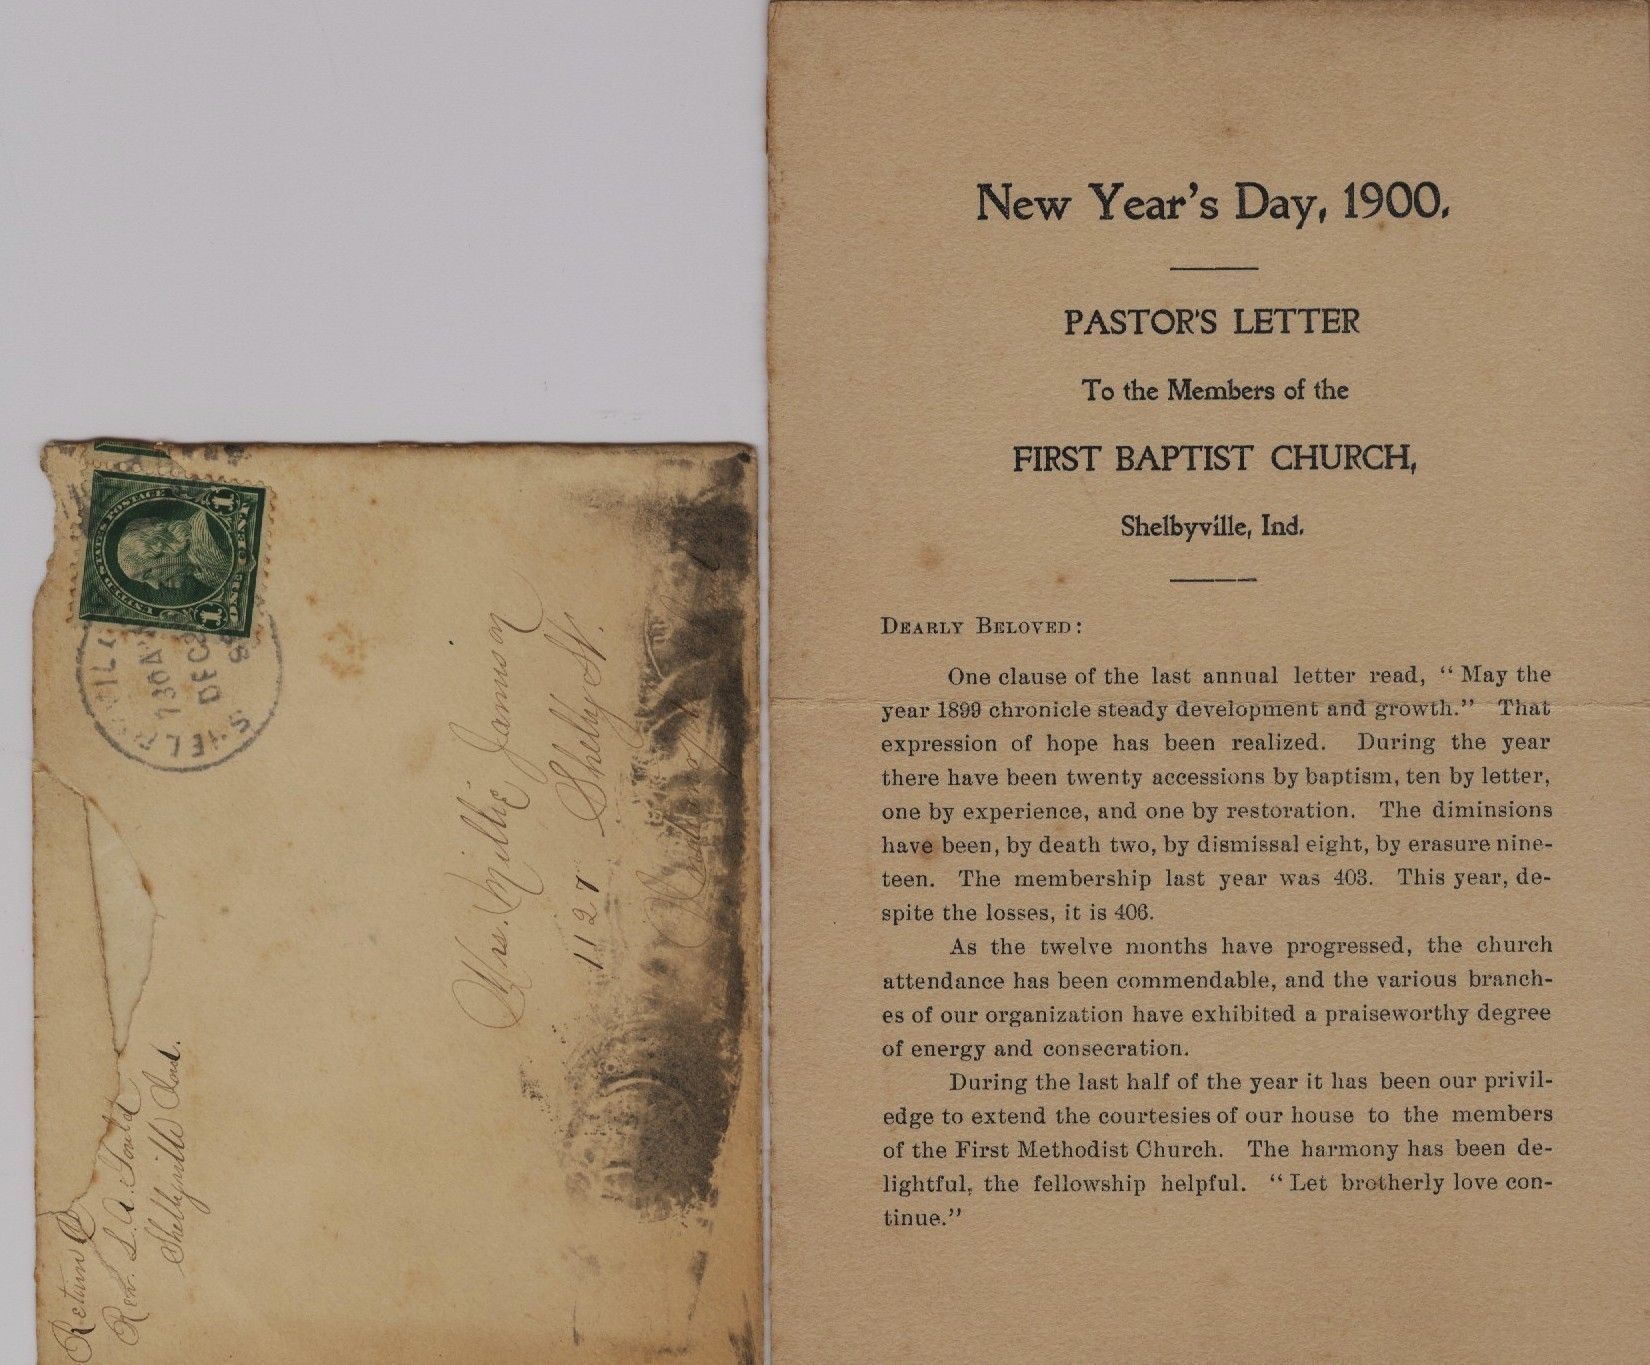 New Year's Day, 1900.
PASTOR'S LETTER
To the Members of the
FIRST BAPTIST CHURCH,
Shelbyville, Ind.
DEARLY BELOVED:
One clause of the last annual letter read, "May the
year 1899 chronicle steady development and growth." That
expression of hope has been realized. During the year
there have been twenty accessions by baptism, ten by letter,
one by experience, and one by restoration. The diminsions
have been, by death two, by dismissal eight, by erasure nine-
teen. The membership last year was 403. This year, de-
spite the losses, it is 406.
As the twelve months have progressed, the church
attendance has been commendable, and the various branch-
es of our organization have exhibited a praiseworthy degree
of energy and consecration.
During the last half of the year it has been our privil-
edge to extend the courtesies of our house to the members
of the First Methodist Church. The harmony has been de-
lightful, the fellowship helpful. "Let brotherly love con-
tinue."
Return
Rev. L. A. Gould
Shelbyville Ind.
Mrs. Millie Jamison
1127 Shelby St.
UNITED STATES POSTAGE
1 1
ONE CENT
730 A
DEC